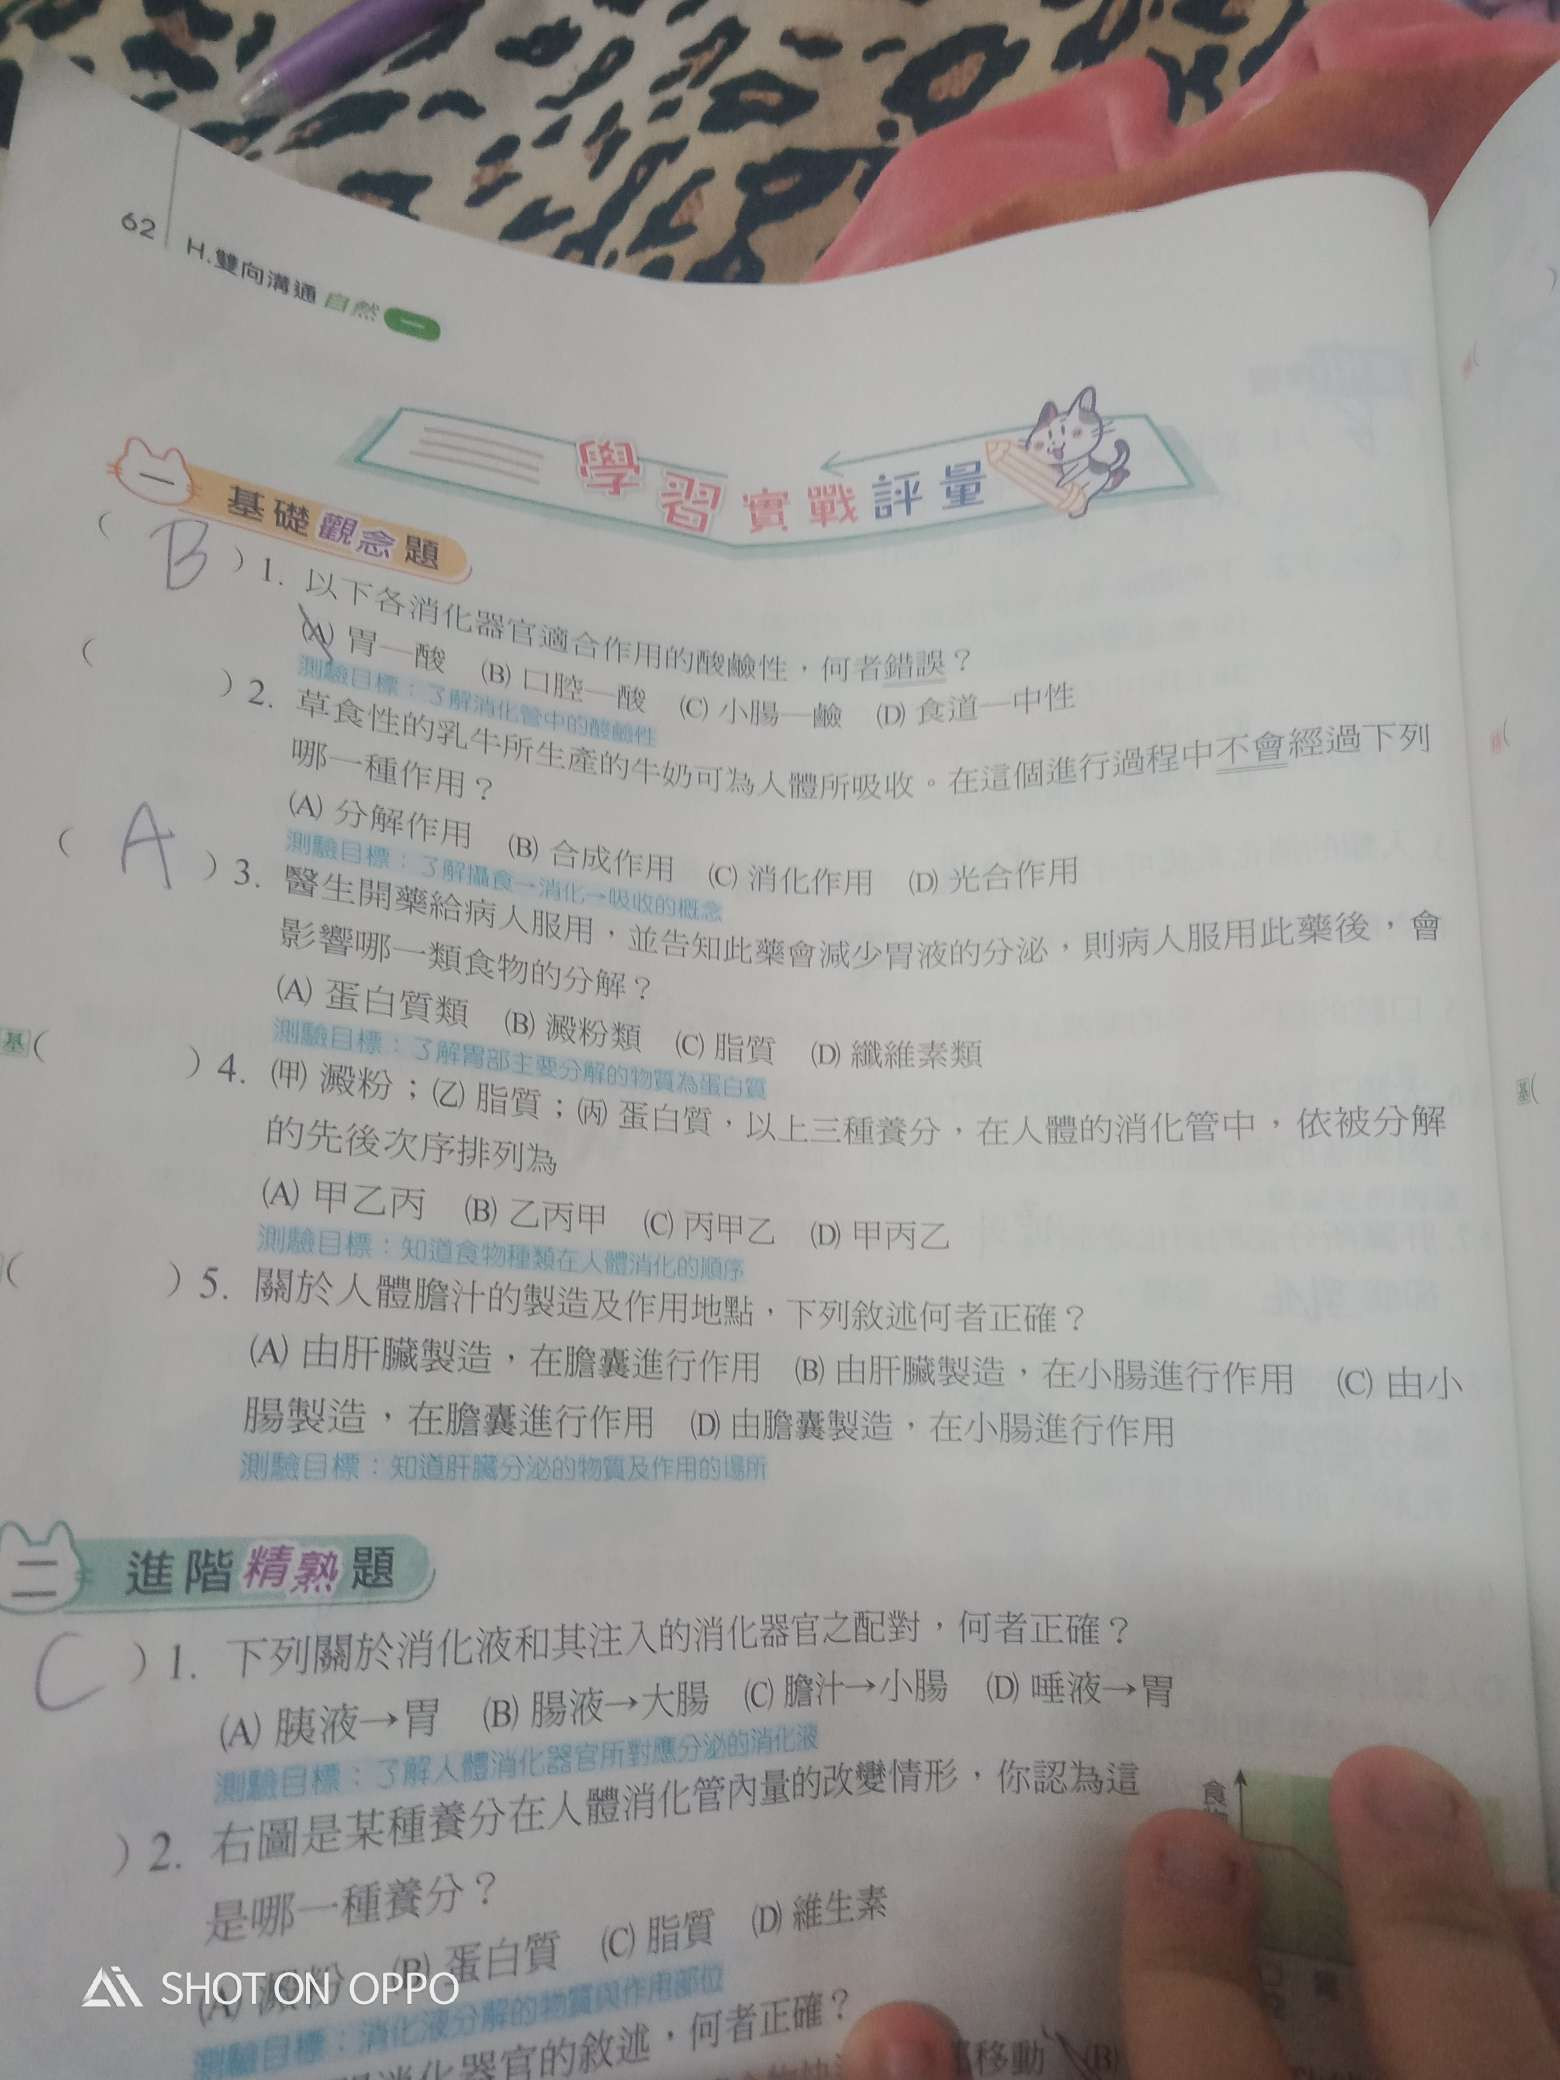 62
H.雙向溝通 自然 一
學習實戰評量
一 基礎觀念題
( B )1. 以下各消化器官適合作用的酸鹼性，何者錯誤？
(A) 胃—酸 (B) 口腔—酸 (C) 小腸—鹼 (D) 食道—中性
測驗目標：了解消化管中的酸鹼性
( )2. 草食性的乳牛所生產的牛奶可為人體所吸收。在這個進行過程中不會經過下列
哪一種作用？
(A) 分解作用 (B) 合成作用 (C) 消化作用 (D) 光合作用
測驗目標：了解攝食→消化→吸收的概念
( A )3. 醫生開藥給病人服用，並告知此藥會減少胃液的分泌，則病人服用此藥後，會
影響哪一類食物的分解？
(A) 蛋白質類 (B) 澱粉類 (C) 脂質 (D) 纖維素類
測驗目標：了解胃部主要分解的物質為蛋白質
基( )4. (甲) 澱粉；(乙) 脂質；(丙) 蛋白質，以上三種養分，在人體的消化管中，依被分解
的先後次序排列為
(A) 甲乙丙 (B) 乙丙甲 (C) 丙甲乙 (D) 甲丙乙
測驗目標：知道食物種類在人體消化的順序
( )5. 關於人體膽汁的製造及作用地點，下列敘述何者正確？
(A) 由肝臟製造，在膽囊進行作用 (B) 由肝臟製造，在小腸進行作用 (C) 由小
腸製造，在膽囊進行作用 (D) 由膽囊製造，在小腸進行作用
測驗目標：知道肝臟分泌的物質及作用的場所
二 進階精熟題
C )1. 下列關於消化液和其注入的消化器官之配對，何者正確？
(A) 胰液→胃 (B) 腸液→大腸 (C) 膽汁→小腸 (D) 唾液→胃
測驗目標：了解人體消化器官所對應分泌的消化液
)2. 右圖是某種養分在人體消化管內量的改變情形，你認為這
是哪一種養分？
(A) 澱粉 (B) 蛋白質 (C) 脂質 (D) 維生素
測驗目標：消化液分解的物質與作用部位
食
消化器官的敘述，何者正確？
移動 (B)
SHOT ON OPPO